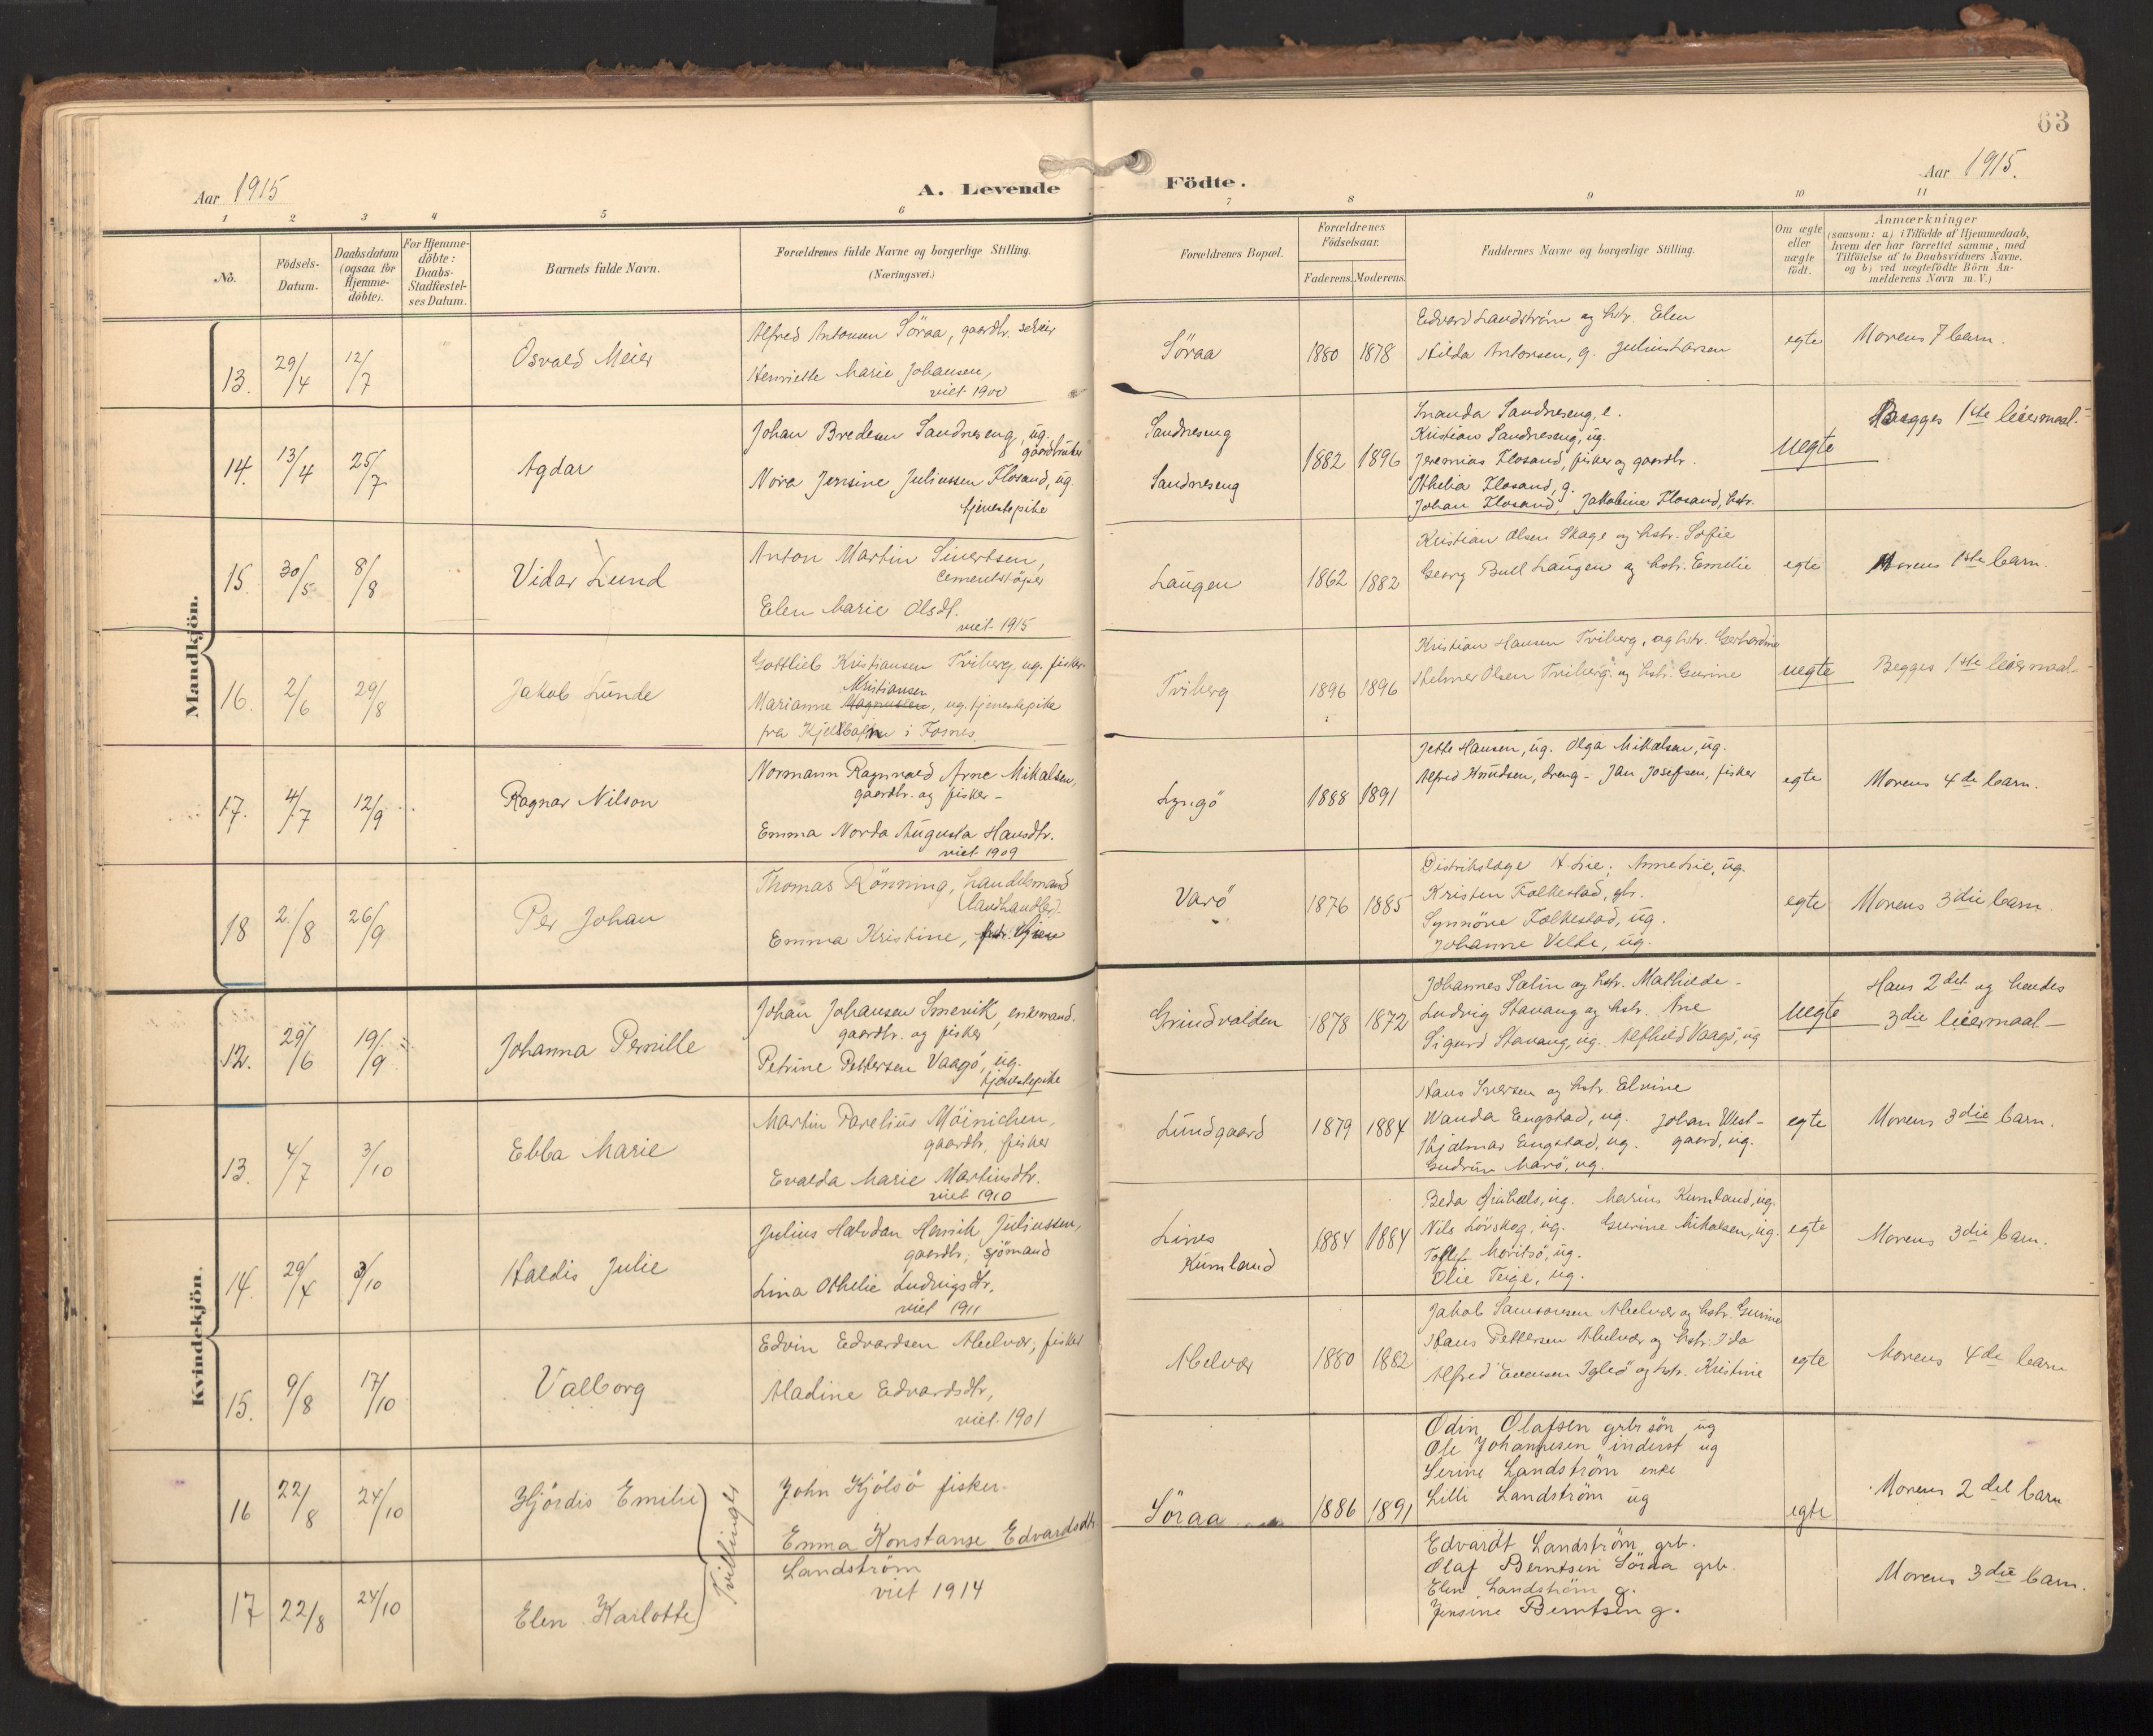 63
Aar 1915
A. Levende Födte.
Aar 1915.
1 2 3 4 5 6 7 8 9 10 11
No.
Födsels-
Datum.
Daabsdatum
(ogsaa for
Hjemme-
döbte).
For Hjemme-
döbte:
Daabs-
Stadfæstel-
ses Datum.
Barnets fulde Navn.
Forældrenes fulde Navne og borgerlige Stilling.
(Næringsvei.)
Forældrenes Bopæl.
Forældrenes
Födselsaar.
Faderens. Moderens.
Faddernes Navne og borgerlige Stilling.
Om ægte
eller
uægte
födt.
Anmærkninger
(saasom: a) i Tilfælde af Hjemmedaab,
hvem der har forrettet samme, med
Tilföielse af to Daabsvidners Navne.
og b) ved uægtefödte Börn An-
melderens Navn m. V.)
Mandkjön.
13. 29/4 12/7
Osvald Meier
Alfred Antonsen Söraa, gaardbr.
Henriette Marie Johansen,
viet 1900
Söraa
1880 1878
Edvard Landström og hstr. Elen
Hilda Antonsen, g. Julius Larsen
egte
Morens 7 barn.
14. 13/4 25/7
Agdar
Johan Bredesen Sandneseng, ug.
gaardbruker
Nora Jensine Juliussen Flosand, ug
tjenestepike
Sandneseng
Sandneseng
1882 1896
Inanda Sandneseng, e.
Kristian Sandneseng, ug.
Jeremias Flosand, fisker og gaardbr.
Othelia Flosand, g.
Johan Flosand, Jakobine Flosand, hstr.
uegte
Begges 1ste leiermaal.
15. 30/5 8/8
Vidar Lund
Anton Martin Sivertsen,
cementstöper
Elen Marie Olsdt.
viet 1915
Laugen
1862 1882
Kristian Olsen Skage og hstr. Sofie
Georg Bull Laugen og hstr. Emilie
egte
Morens 1ste barn.
16. 2/6 29/8
Jakob Lunde
Gottlieb Kristiansen Tviberg, ug. fisker
Kristiansen
Marianne Magnussen, ug. tjenestepike
fra i Fosnes.
Tviberg
1896 1896
Kristian Hansen Tviberg, og hstr. Gerhardine
Helmer Olsen Tviberg og hstr. Gurine
uegte
Begges 1ste leiermaal.
17. 4/7 12/9
Ragnar Nilson
Normann Ragnvald Arne Mikalsen,
gaardbr. og fisker -
Emma Norda Augusta Hansdtr.
viet 1909
Lyngö
1888 1891
Jette Hansen, ug. Olga Mikalsen, ug.
Alfred Knudsen, dreng - Jan Josefsen, fisker
egte
Morens 4de barn.
18 2/8 26/9
Per Johan
Thomas Rönning, handelsmand
(landhandler).
Emma Kristine,
Varö
1876 1885
Distriktslæge H. Lie; Anne Lie, ug.
Kristen Folkestad, gbr.
Synnöve Folkestad, ug.
Johanne Velde, ug.
egte
Morens 3die barn.
Kvindekjön.
12. 29/6 19/9
Johanna Pernille
Johan Johansen Smevik, enkemand.
gaardbr. og fisker
Petrine Pettersen Vaagö, ug.
tjenestepike
Grindvalden
1878 1872
Johannes Salin og hstr. Mathilde -
Ludvig Stavang og hstr. Ane
Sigurd Stavang, ug. Alfhild Vaagö, ug
uegte
Hans 2det og hendes
3die leiermaal -
13. 4/7 3/10
Ebba Marie
Martin Parelius Möinichen,
gaardbr. fisker
Evalda Marie Martinsdtr.
viet 1910
Lundgaard
1879 1884
Hans Iversen og hstr. Elvine
Wanda Engstad, ug. Johan West-
Hjalmar Engstad, ug. gaard, ug.
Gudrun Marö, ug.
egte
Morens 3die barn.
14. 29/4 3/10
Haldis Julie
Julius Halvdan Henrik Juliussen,
gaardbr, sjömand
Lina Othelie Ludvigsdtr,
viet 1911
Lines
Kumland
1884 1884
Beda, ug. Marius Kumland, ug.
Nils Lövskog, ug. Gurine Mikalsen, ug.
Tollef Moritsö, ug.
Olie Teige, ug.
egte
Morens 3die barn.
15. 9/8 17/10
Valborg
Edvin Edvardsen Abelvær, fisker
Aladine Edvardsdtr,
viet 1901
Abelvær
1880 1882
Jakob Samsonsen Abelvær og hstr. Gurine
Hans Pettersen Abelvær og hstr. Ida
Alfred Evensen Iglö og hstr. Kristine
egte
Morens 4de barn
16 22/8 24/10
Hjördis Emilie
Tvillinger
John Kjölsö fisker.
Emma Konstanse Edvardsdtr
Söraa
1886 1891
Odin Olafsen grbr sön ug
Ole Johannesen inderst ug
Serine Landström enke
Lilli Landström ug
egte
Morens 2det barn
17 22/8 24/10
Elen Karlotte
Landström
viet 1914
Edvardt Landström grb.
Olaf Berntsen Söraa grb.
Elen Landström g.
Jensine Berntsen g.
Morens 3die barn.